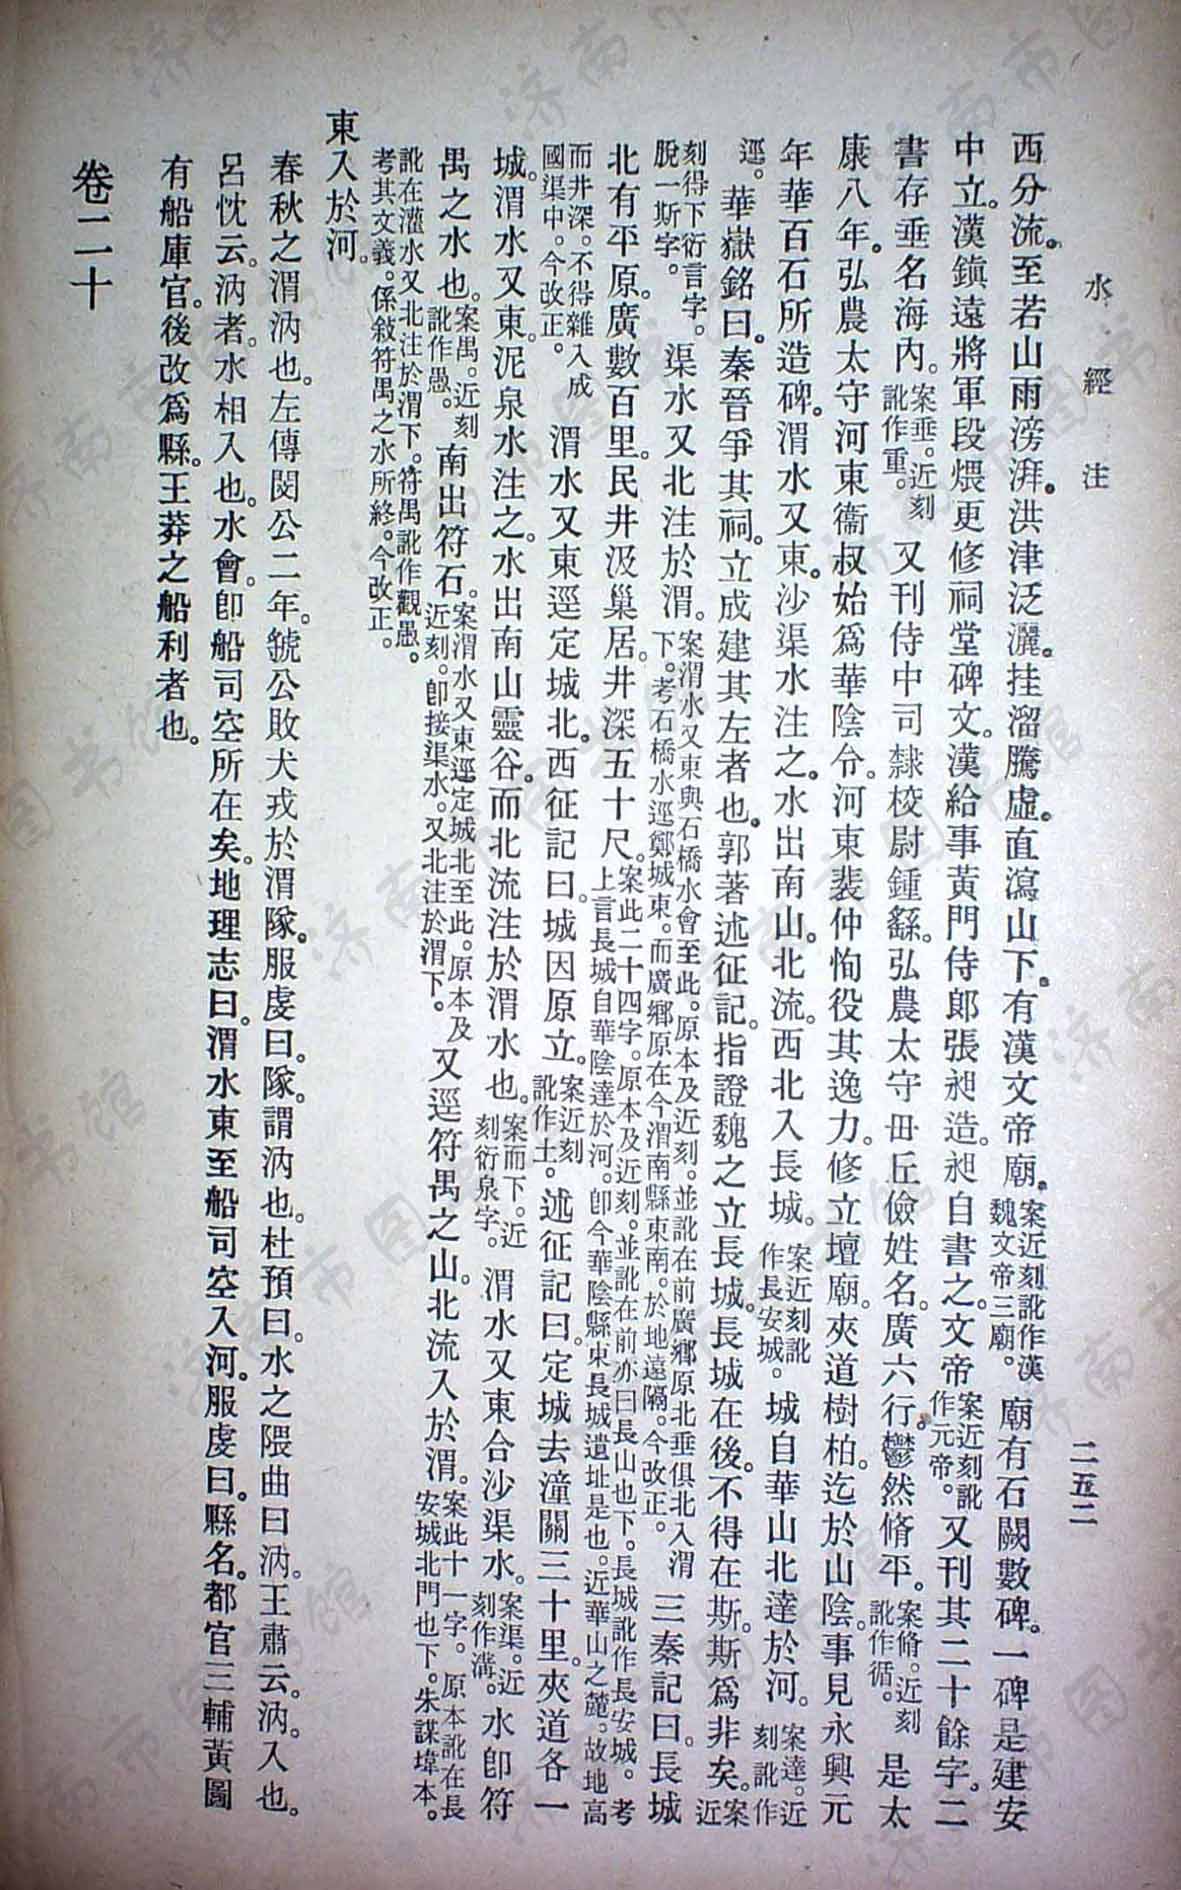 水經注
二五二
西分流。至若山雨滂湃。洪津泛灑。挂溜騰虛。直瀉山下。有漢文帝廟。案近刻訛作漢魏文帝三廟。廟有石闕數碑。一碑是建安
中立。漢鎮遠將軍段煨更修祠堂碑文。漢給事黃門侍郎張昶造。昶自書之。文帝案近刻訛作元帝。又刊其二十餘字。二
書存垂名海內。案垂。近刻訛作重。又刊侍中司隸校尉鍾繇。弘農太守毌丘儉姓名。廣六行。鬱然脩平。案脩。近刻訛作循。是太
康八年。弘農太守河東衞叔始爲華陰令。河東裴仲恂役其逸力。修立壇廟。夾道樹柏。迄於山陰。事見永興元
年華百石所造碑。渭水又東。沙渠水注之。水出南山。北流。西北入長城。案近刻訛作長安城。城自華山北達於河。案達。近刻訛作
逕。華嶽銘曰。秦晉爭其祠。立成建其左者也。郭著述征記。指證魏之立長城。長城在後。不得在斯。斯爲非矣。案近
刻得下衍言字。脫一斯字。渠水又北注於渭。案渭水又東與石橋水會至此。原本及近刻。並訛在前廣鄉原北垂俱北入渭下。考石橋水逕鄭城東。而廣鄉原在今渭南縣東南。於地遠隔。今改正。三秦記曰。長城
北有平原。廣數百里。民井汲巢居。井深五十尺。案此二十四字。原本及近刻。並訛在前亦曰長山也下。長城訛作長安城。考上言長城自華陰達於河。卽今華陰縣東長城遺址是也。近華山之麓。故地高
而井深。不得雜入成國渠中。今改正。渭水又東逕定城北。西征記曰。城因原立。案近刻訛作土。述征記曰。定城去潼關三十里。夾道各一
城。渭水又東。泥泉水注之。水出南山靈谷。而北流注於渭水也。案而下。近刻衍泉字。渭水又東合沙渠水。案渠。近刻作溝。水卽符
禺之水也。案禺。近刻訛作愚。南出符石。案渭水又東逕定城北至此。原本及近刻。卽接渠水。又北注於渭下。又逕符禺之山。北流入於渭。案此十一字。原本訛在長安城北門也下。朱謀㙔本。
訛在灌水又北注於渭下。符禺訛作觀愚。考其文義。係敘符禺之水所終。今改正。
東入於河。
春秋之渭汭也。左傳閔公二年。虢公敗犬戎於渭隊。服虔曰。隊。謂汭也。杜預曰。水之隈曲曰汭。王肅云。汭。入也。
呂忱云。汭者。水相入也。水會。卽船司空所在矣。地理志曰。渭水東至船司空入河。服虔曰。縣名。都官三輔黃圖
有船庫官。後改爲縣。王莽之船利者也。
卷二十